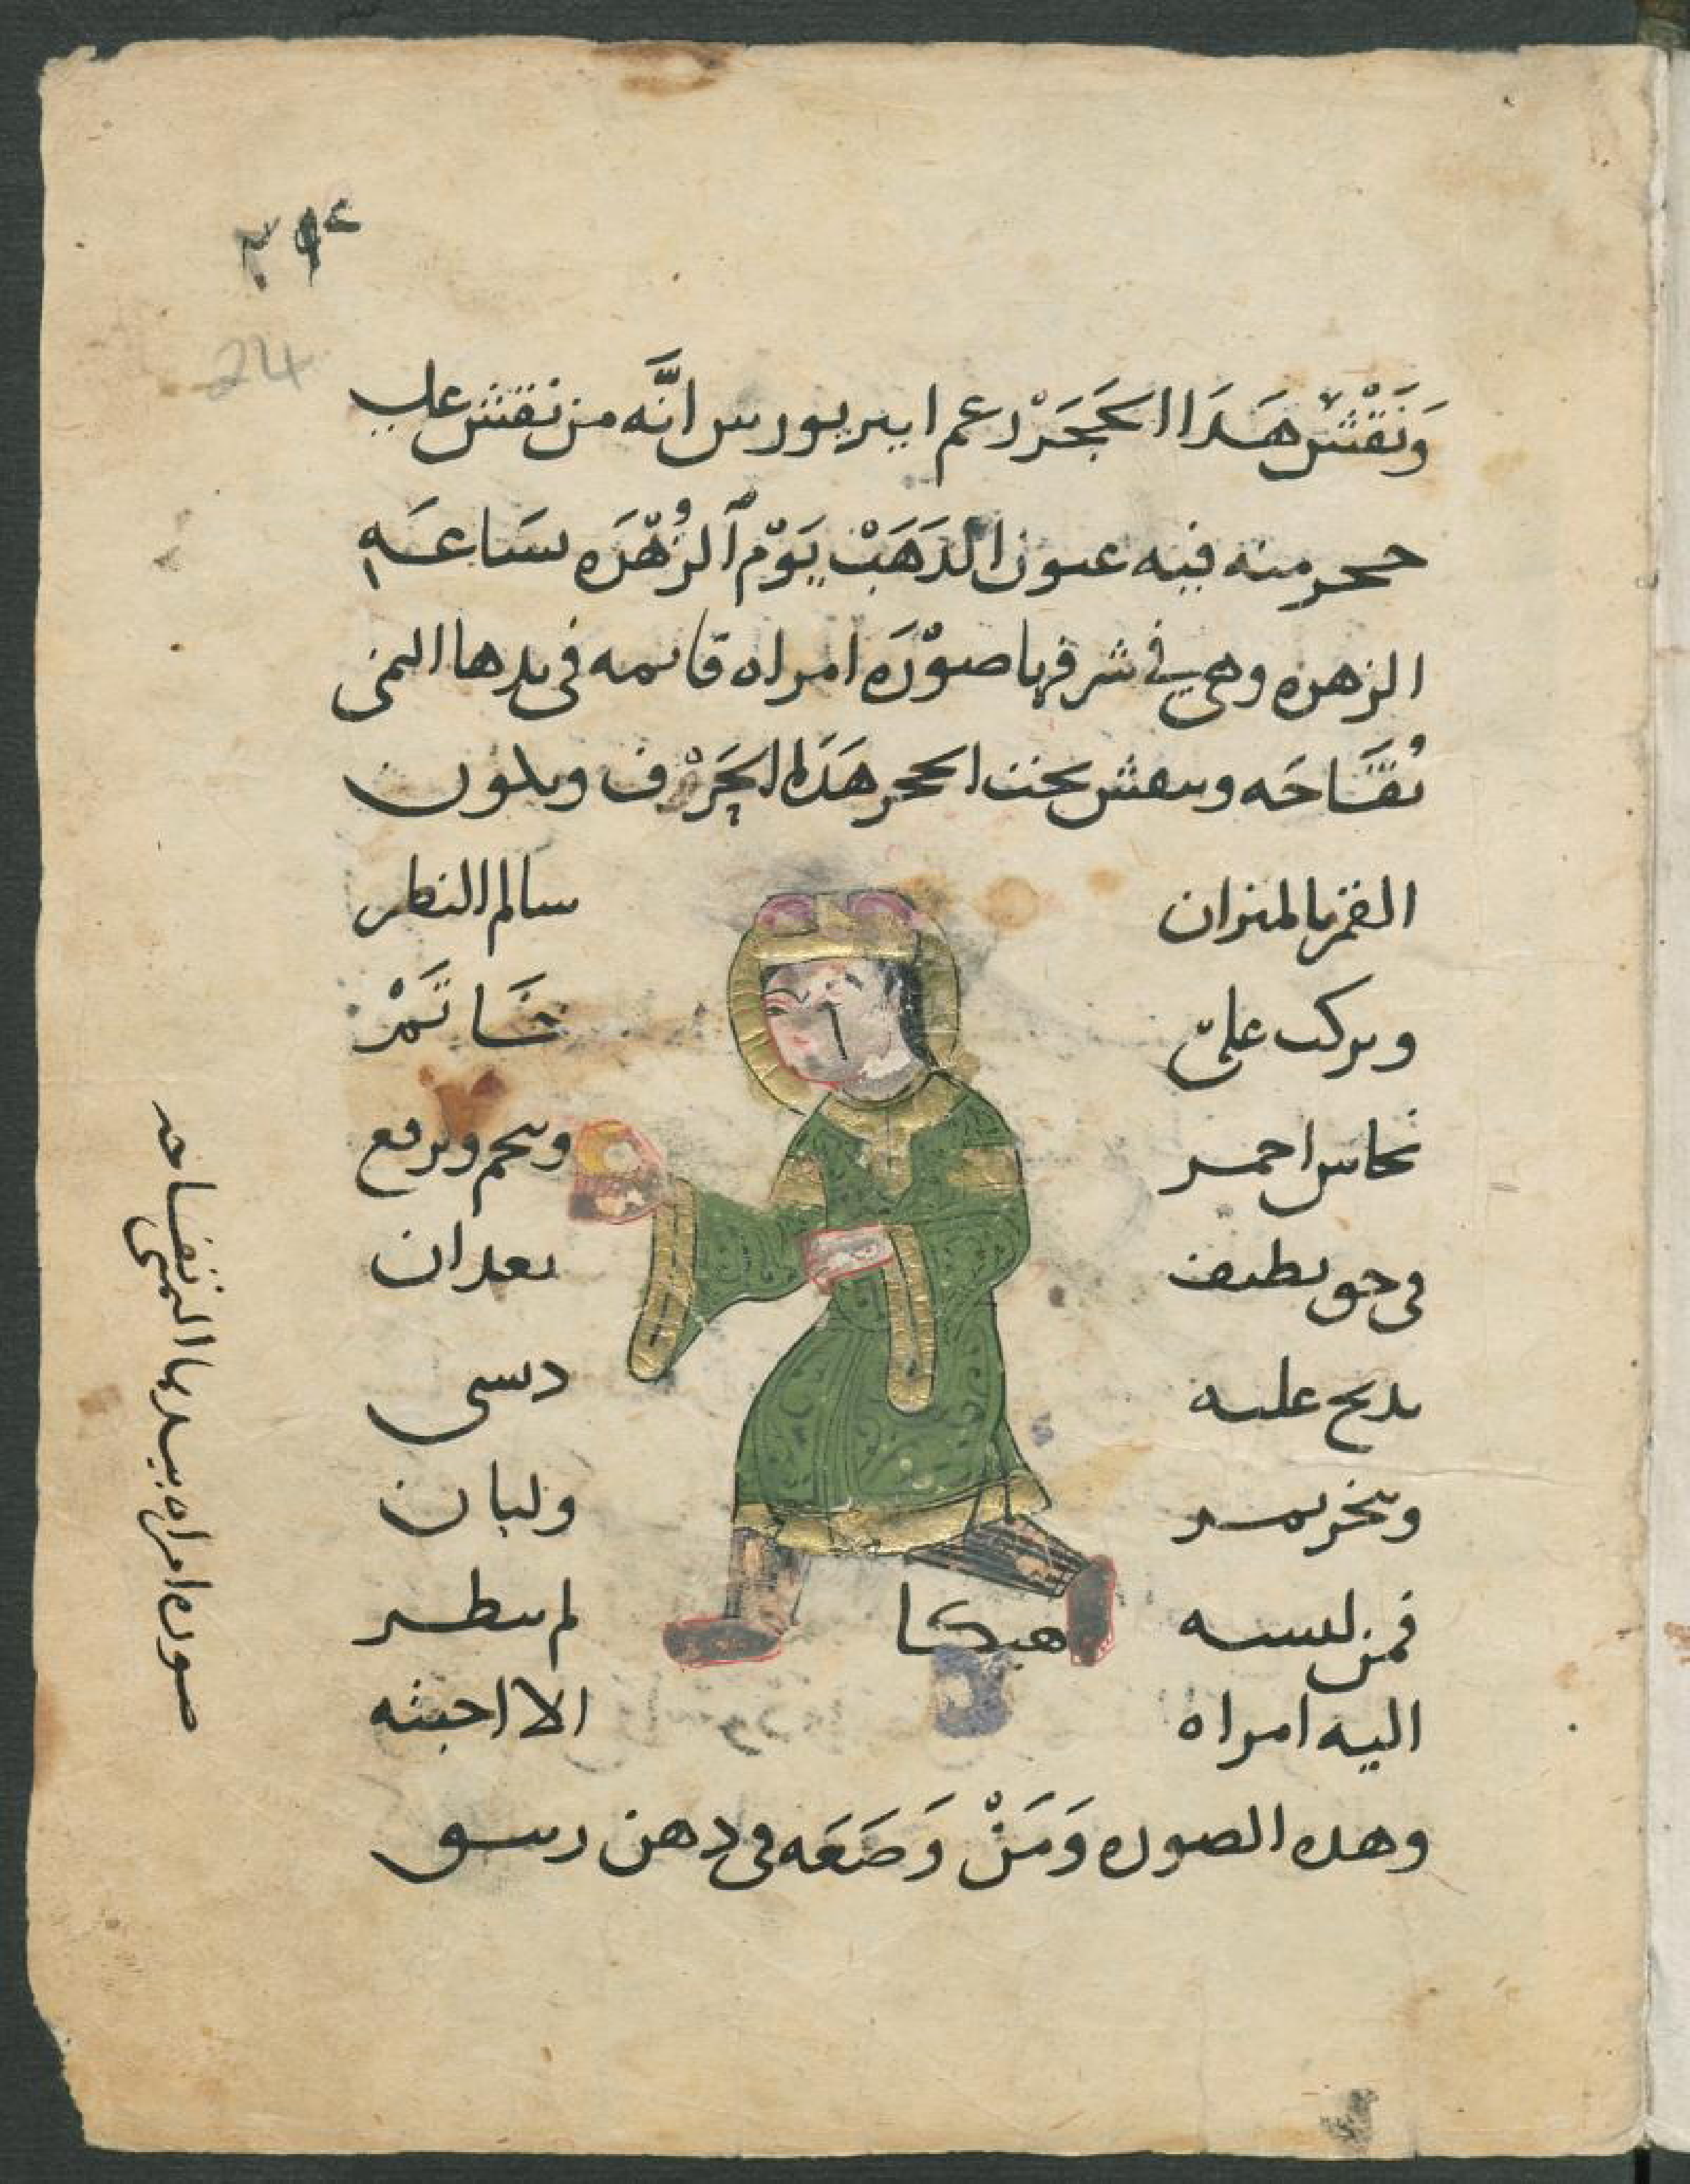 ٢٩٤
24
وَنَقْشُ هَذَا الحَجَرْ زعم انه من نقش على
حجر منه فيه عيون الذَهَبْ يَوْم الزُهْرَه سَاعَه
الزهره وهي في شرفها صوْرَه امراه قائمه في يدها اليمنى
تُفَّاحَه وينقش تحت الحجر هَذَا الحَرْف ويكون
القمر بالميزان سالم النظر
ويركب على خَاتَمْ
نحاس احمر ويختم ويرفع
في حق نظيف بعد ان
يذبح عليه ديسى
ويبخر ولبان
فمن لبسه لم ينظر
هيكا
اليه امراه الا احبته
وهذه الصوره وَمَنْ وَضَعَه في دهن
صوره امراه بيدها اليمنى تفاحه